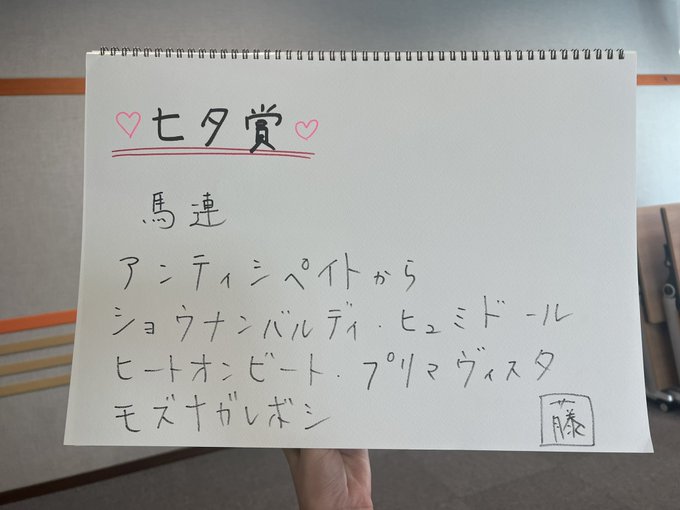 ♡七夕賞♡
馬連
アンティシペイトから
ショウナンバルディ・ヒュミドール
ヒートオンビート・プリマヴィスタ
モズナガレボシ
藤